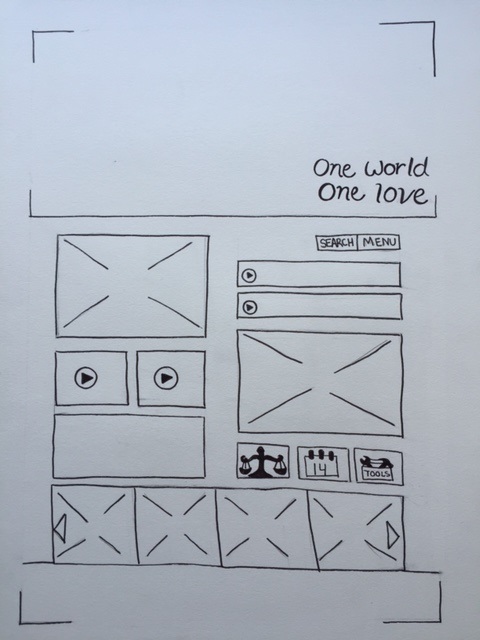 One world
One love
SEARCH MENU
14
TOOLS